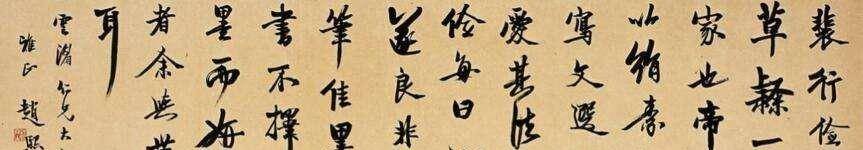 裴行儉
草隸一
家也帝
以絹素
寫文選
愛其法
儉每曰
遂良非
筆佳墨
書不擇
墨而妍
者余
耳
雲渚仁兄大
雅正 趙熙